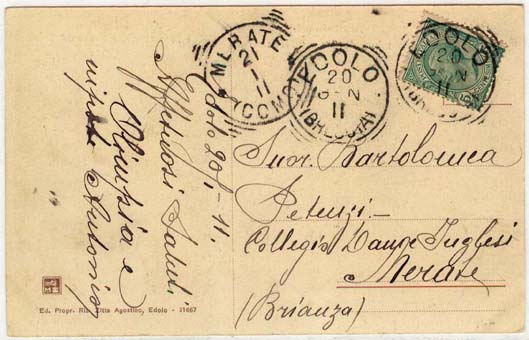 Edolo 20/1-11.
Affettuosi Saluti
Olimpia e
nipote Antonio
MERATE
21
1
11
(COMO)
EDOLO
20
GEN
11
(BRESCIA)
EDOLO
20
GEN
11
(BRESCIA)
Suor Bartolomea
Petenzi-
Collegio Dame Inglesi
Merate
(Brianza)
Ed. Propr. Ris. Ditta Agostino, Edolo - 31667